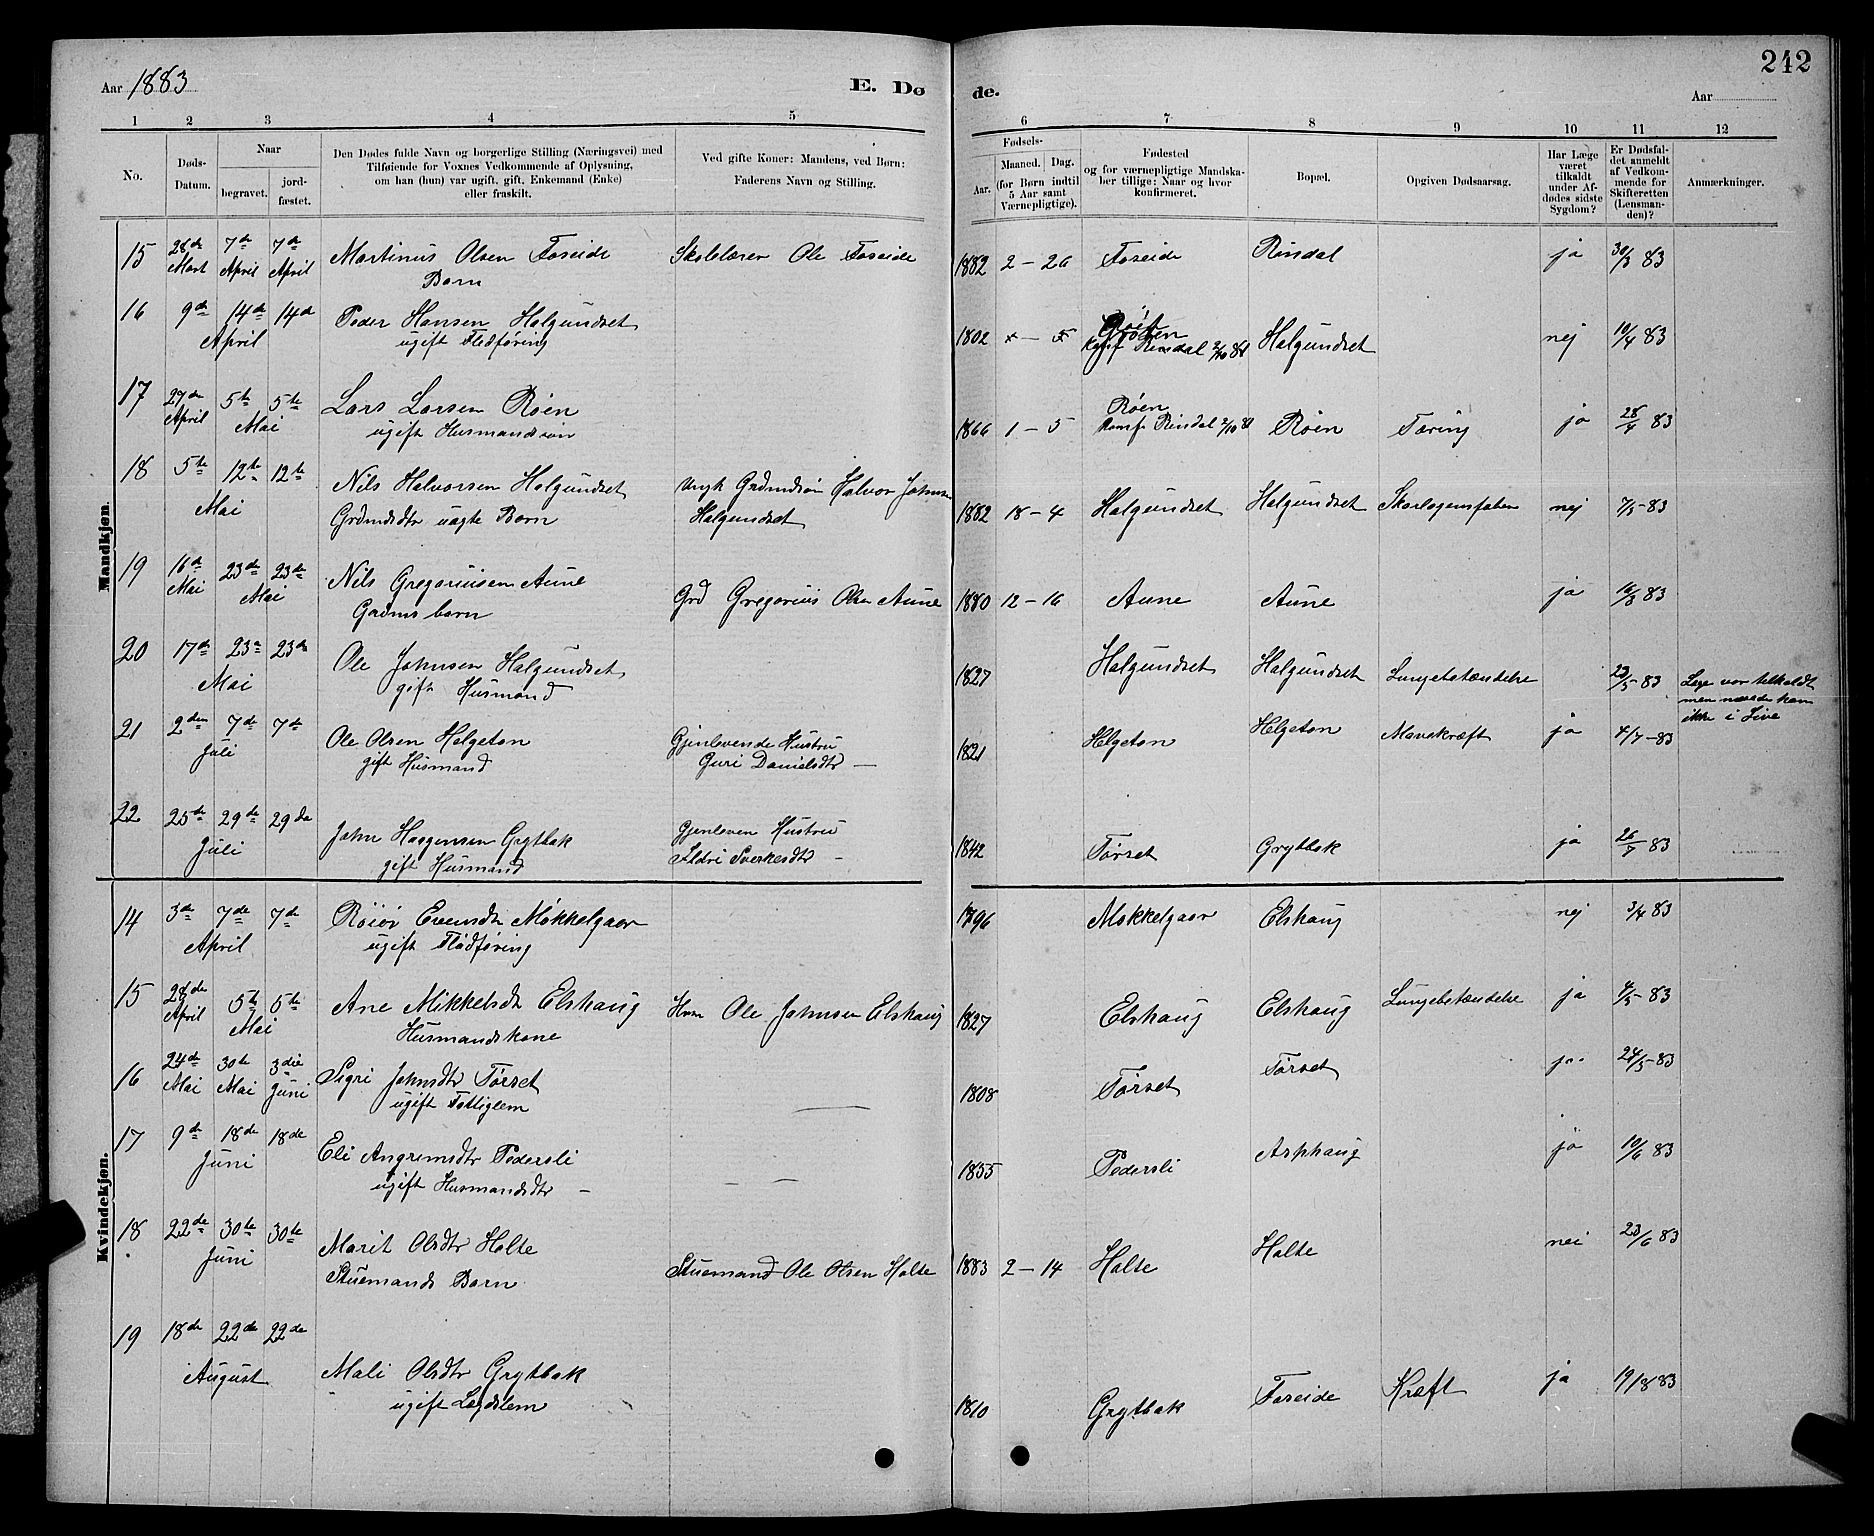 Aar 1883
E. Dø
de.
242
Aar
1 2 3 4 5 6 7 8 9 10 11 12
No.
Døds-
Datum.
Naar
begravet.
jord-
fæstet.
Den Dødes fulde Navn og borgerlige Stilling (Næringsvei) med
Tilføiende for Voxnes Vedkommende af Oplysning,
om han (hun) var ugift, gift, Enkemand (Enke)
eller fraskilt.
Ved gifte Koner: Mandens, ved Børn:
Faderens Navn og Stilling.
Fødsels-
Aar.
Maaned. Dag.
(for Børn indtil
5 Aar samt
Værnepligtige).
Fødested
og for værnepligtige Mandska-
ber tillige: Naar og hvor
konfirmeret.
Bopæl.
Opgiven Dødsaarsag.
Har Læge
været
tilkaldt
under Af-
dødes sidste
Sygdom?
Er Dødsfal-
det anmeldt
af Vedkom-
mende for
Skifteretten
(Lensman-
den)?
Anmærkninger.
Mandkjøn.
15 28de Mart 7de April 7de April Martinus Olsen Foseide Skolelærer Ole Foseide 1882 2 – 26 Foseide Rindal ja 30/3 83
Barn
16 9de 14de 14de Peder Hansen Halgundset 1802 Halgundset nej 10/4 83
April ugift Flødføring
17 27de April 5te 5te Lars Larsen Røen 1866 1 – 5 Røen Røen Tæring ja 28/4 83
Mai ugift Husmandssøn Konf. Rindal 2/10 81
18 5te 12te 12te Nils Halvorsen Halgundset Ungk Grdmdsøn Halvor Johnsen 1882 18 – 4 Halgundset Halgundset Skarlagensfeber nej 7/5 – 83
Mai Grdmdsdtr uægte Barn Halgundset
19 16de Mai 23de 23de Nils Gregoriusen Aune Grd Gregorius Olsen Aune 1880 12 – 16 Aune Aune ja 83
Mai Grdms barn
20 17de 23de 23de Ole Johnsen Halgundset 1827 Halgundset Halgundset Lungebetændelse 23/5 – 83 Læge var tilkaldt
Mai gift Husmand men naaede ham
ikke i Live
21 2den 7de 7de Ole Olsen Helgeton Gjenlevende Hustru 1821 Helgeton Helgeton Mavekræft ja 4/7 – 83
Juli gift Husmand Guri Danielsdtr –
22 25de 29de 29de John Haagensen Grytbak Gjenleven Hustru 1842 Tørset Grytbak ja 26/7 83
Juli gift Husmand Ildri Sverkesdtr –
Kvindekjøn.
14 3de 7de 7de Røiør Evensdtr Møkkelgaar 1796 Møkkelgaar Elshaug nej 3/4 83
April ugift Flødføring
15 28de April 5te 5te Ane Mikkelsdt Elshaug Hsm Ole Johnsen Elshaug 1827 Elshaug Elshaug Lungebetændelse ja 4/5 – 83
Mai Husmandskone
16 24de Mai 30te Mai 3die Juni Sigri Johnsdtr Tørset 1808 Tørset Tørset ja 24/5 – 83
ugift Fattiglem
17 9de 18de 18de Eli Angrimsdtr Pedersli 1855 Pedersli Asphaug ja 10/6 83
Juni ugift Husmandsdtr –
18 22de 30te 30te Marit Olsdtr Holte Stuemand Ole Olsen Holte 1883 2 – 14 Holte Holte nei 23/6 83
Juni Stuemands Barn
19 18de 22de 22de
August Mali Olsdtr Grytbak 1810 Grytbak Foseide Kræft ja 19/8 83
ugift Lægdslem